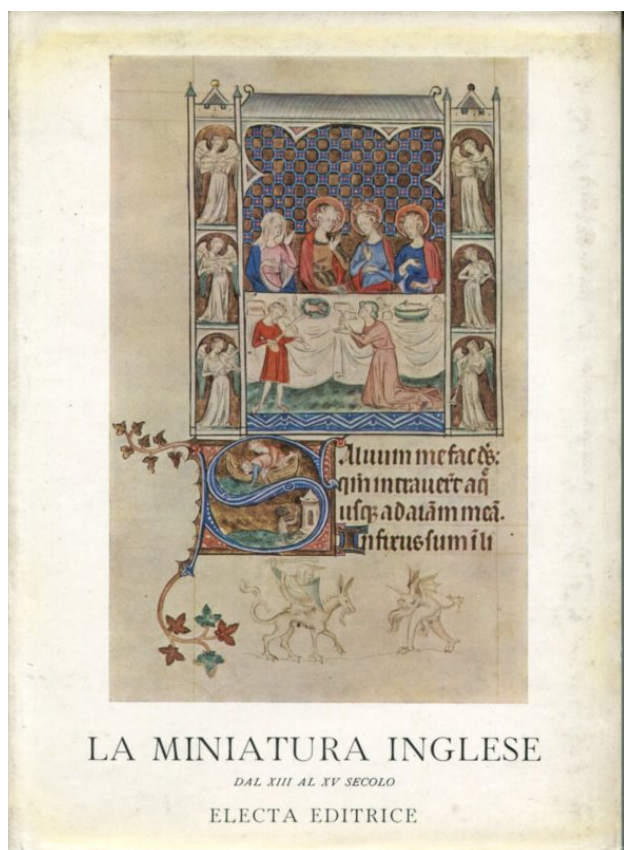 Saluum me fac ds:
qm̄ intrauert̄ aq̄
usq; ad aīam meā.
Infixus sum ī li
LA MINIATURA INGLESE
DAL XIII AL XV SECOLO
ELECTA EDITRICE